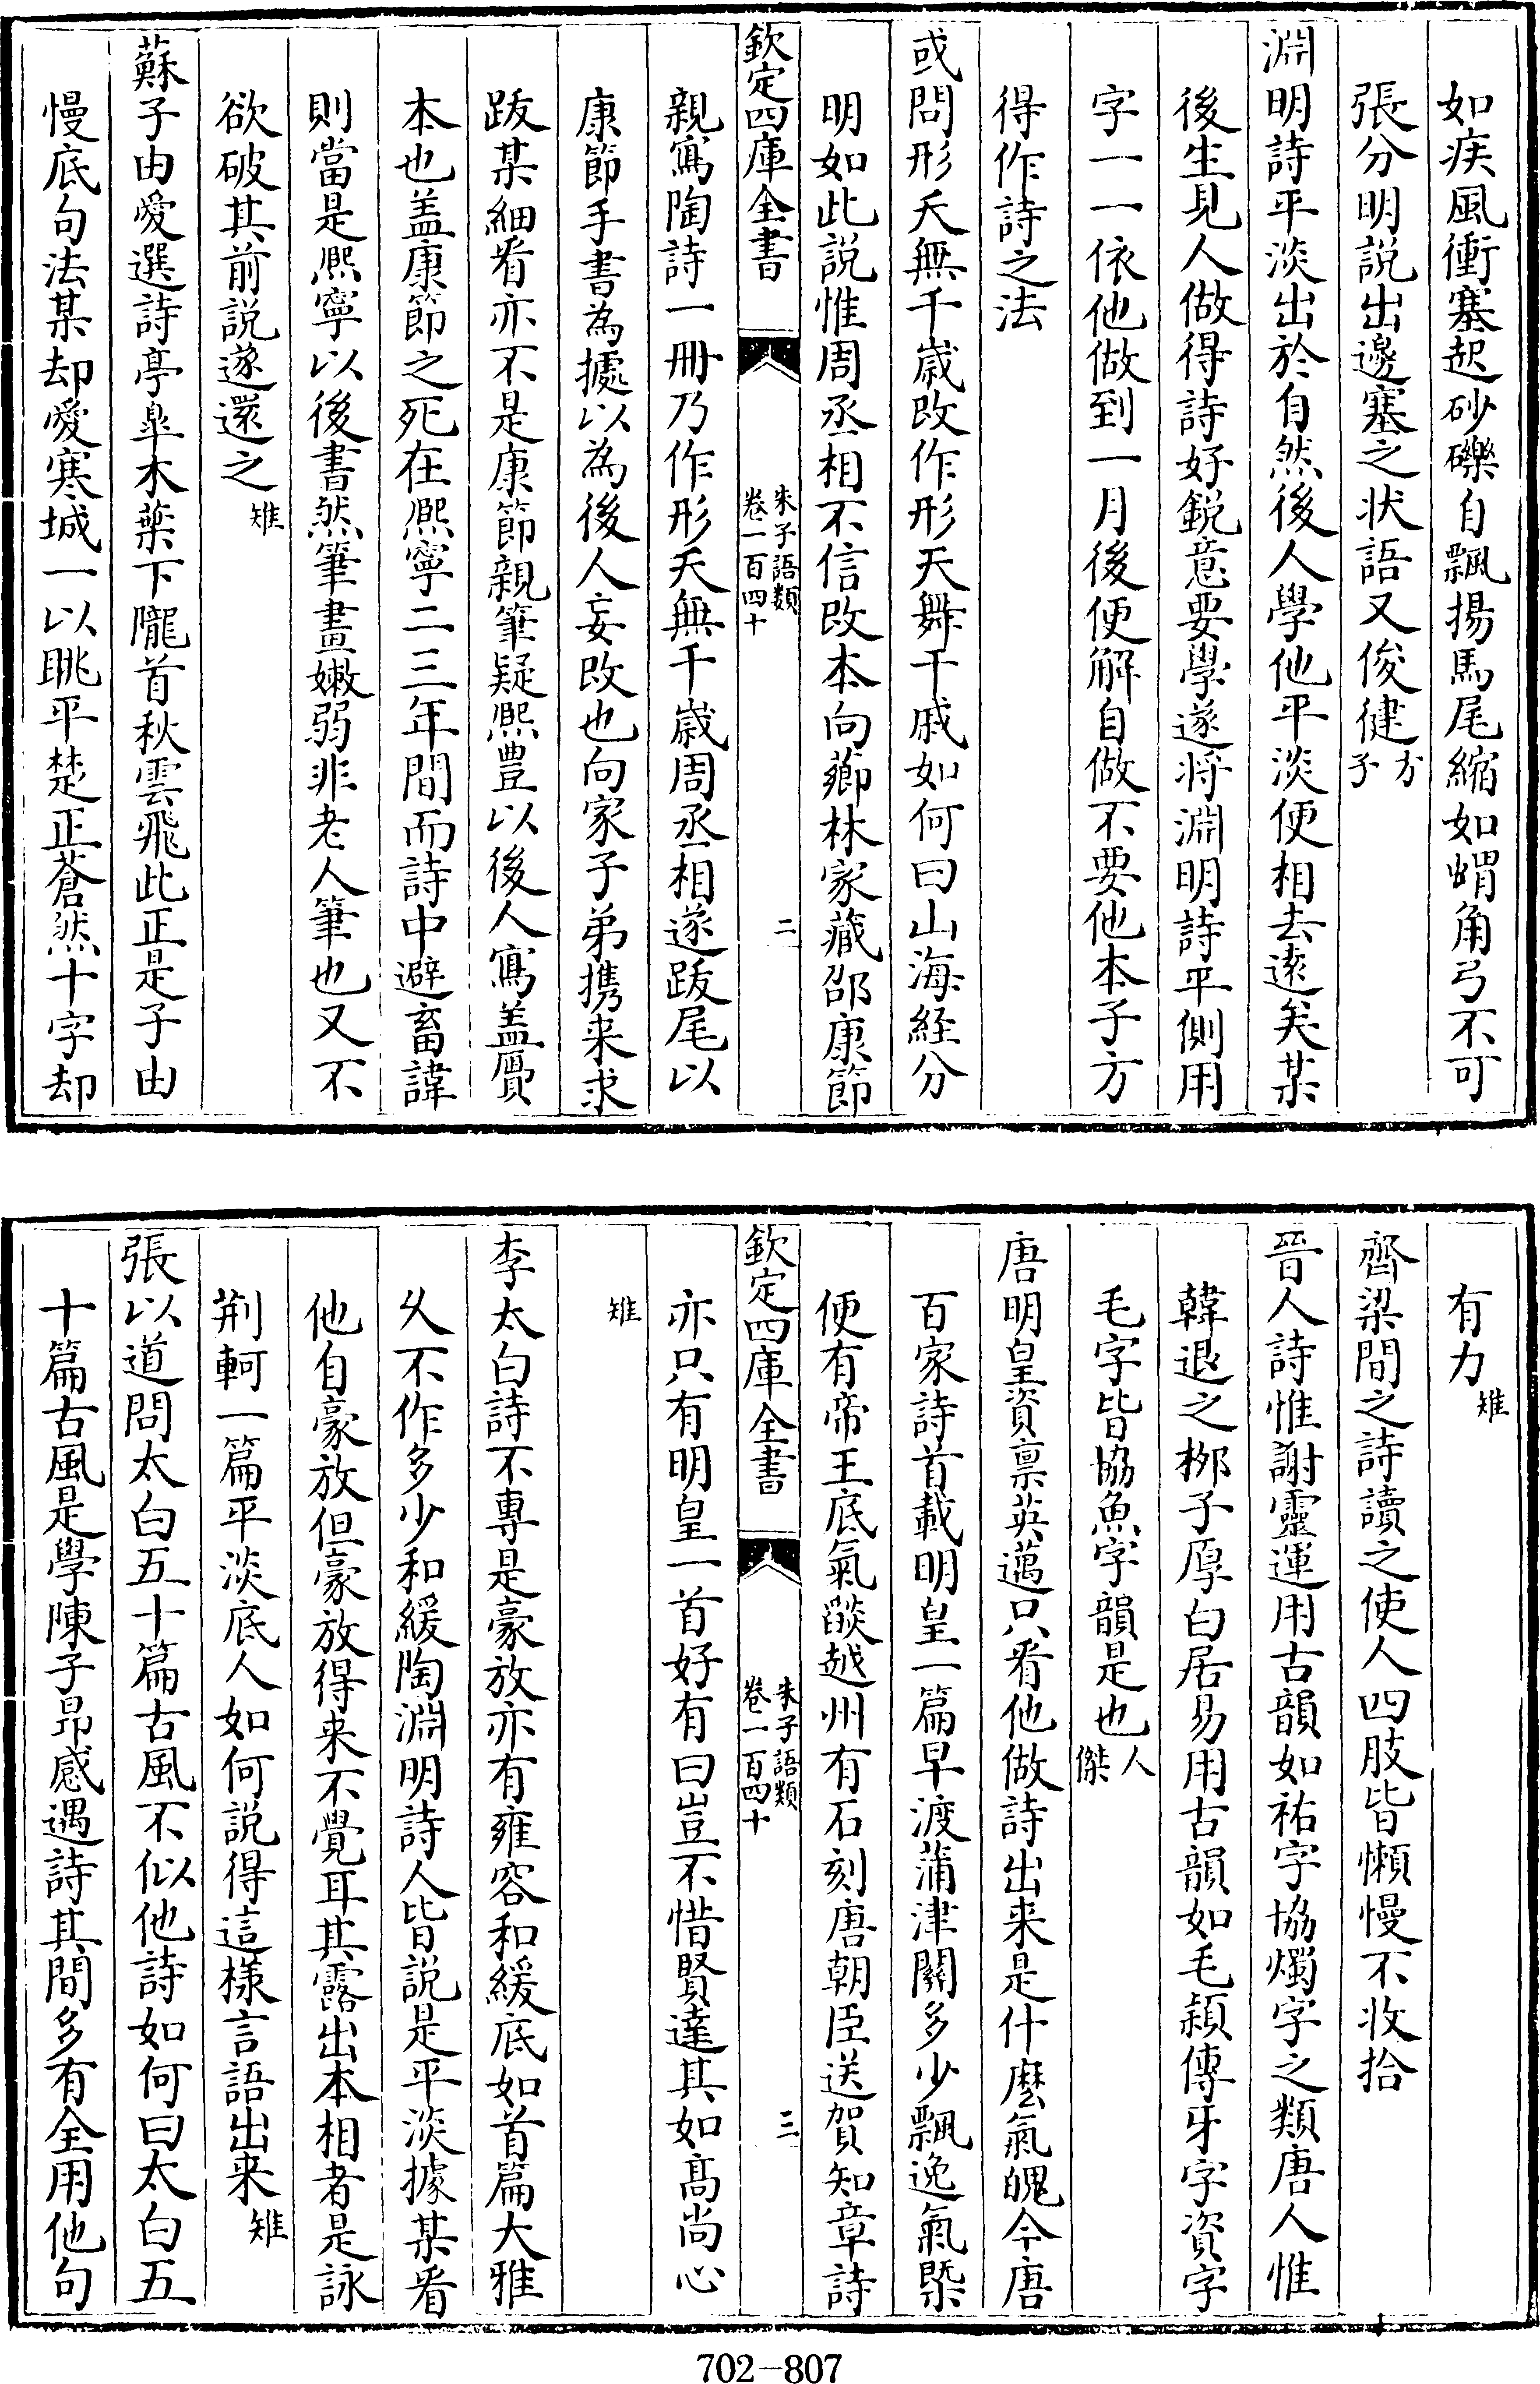 如疾風衝塞起砂礫自飄揚馬尾縮如蝟角弓不可
張分明說出邊塞之狀語又俊健方子
淵明詩平淡出於自然後人學他平淡便相去逺矣某
後生見人做得詩好鋭意要學遂将淵明詩平側用
字一一依他做到一月後便解自做不要他本子方
得作詩之法
或問形夭無千嵗改作形天舞干戚如何曰山海經分
明如此説惟周丞相不信改本向薌林家藏邵康節
欽定四庫全書
朱子語類
卷一百四十
二
親寫陶詩一冊乃作形夭無千嵗周丞相遂跋尾以
康節手書為據以為後人妄改也向家子弟携来求
跋某細看亦不是康節親筆疑熙豐以後人寫盖贗
本也盖康節之死在熙寧二三年間而詩中避畜諱
則當是熙寧以後書然筆畫嫩弱非老人筆也又不
欲破其前説遂還之㽥
蘇子由愛選詩亭臯木葉下隴首秋雲飛此正是子由
慢底句法某却愛寒城一以眺平楚正蒼然十字却
有力㽥
齊梁間之詩讀之使人四肢皆懶慢不收拾
晉人詩惟謝靈運用古韻如祐字協燭字之類唐人惟
韓退之栁子厚白居易用古韻如毛頴傳牙字資字
毛字皆協魚字韻是也人傑
唐明皇資禀英邁只看他做詩出来是什麽氣魄今唐
百家詩首載明皇一篇早渡蒲津關多少飄逸氣槩
便有帝王底氣燄越州有石刻唐朝臣送賀知章詩
欽定四庫全書
朱子語類
卷一百四十
三
亦只有明皇一首好有曰豈不惜賢達其如髙尚心
㽥
李太白詩不專是豪放亦有雍容和緩底如首篇大雅
乆不作多少和緩陶淵明詩人皆説是平淡據某看
他自豪放但豪放得来不覺耳其露出本相者是詠
荆軻一篇平淡底人如何説得這様言語出来㽥
張以道問太白五十篇古風不似他詩如何曰太白五
十篇古風是學陳子昻感遇詩其間多有全用他句
702-807